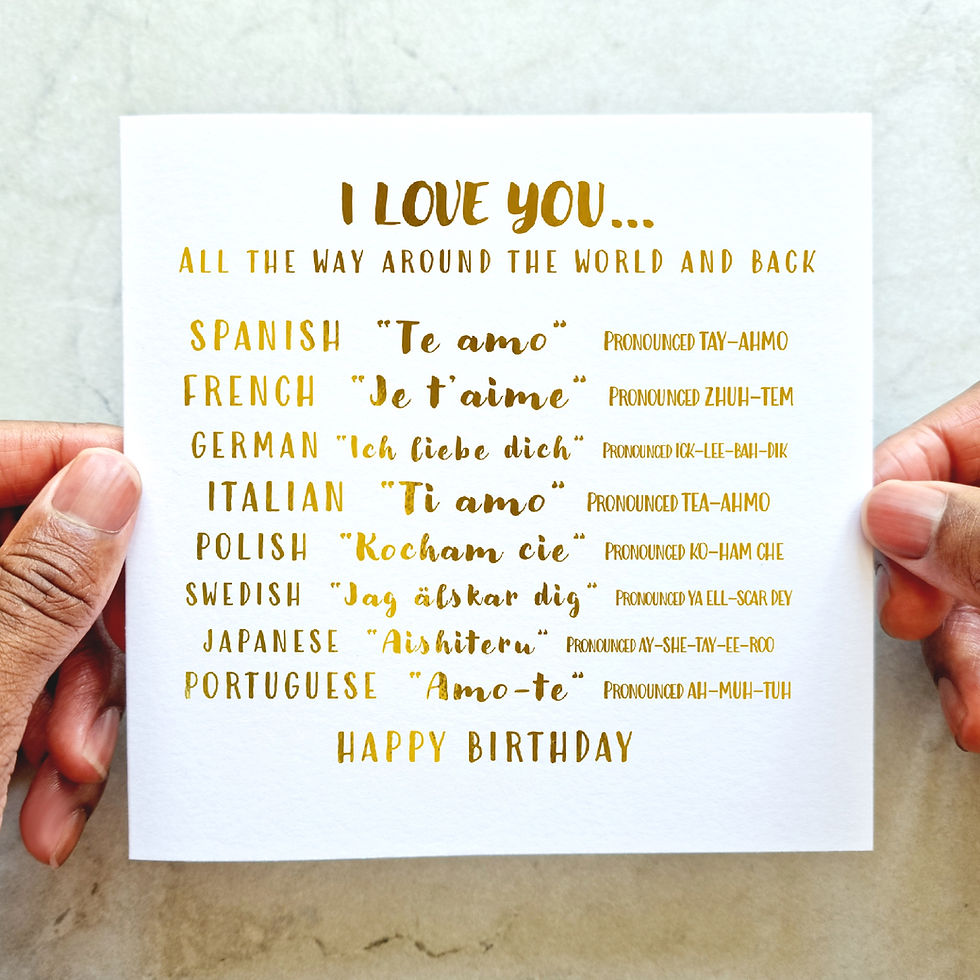 I LOVE YOU...
ALL THE WAY AROUND THE WORLD AND BACK
SPANISH "Te amo" PRONOUNCED TAY-AHMO
FRENCH "Je t'aime" PRONOUNCED ZHUH-TEM
GERMAN "Ich liebe dich" PRONOUNCED ICK-LEE-BAH-DIK
ITALIAN "Ti amo" PRONOUNCED TEA-AHMO
POLISH "Kocham cie" PRONOUNCED KO-HAM CHE
SWEDISH "Jag älskar dig" PRONOUNCED YA ELL-SCAR DEY
JAPANESE "Aishiteru" PRONOUNCED AY-SHE-TAY-EE-ROO
PORTUGUESE "Amo-te" PRONOUNCED AH-MUH-TUH
HAPPY BIRTHDAY